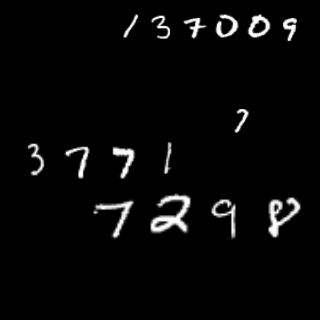 137009
7
3771
7298